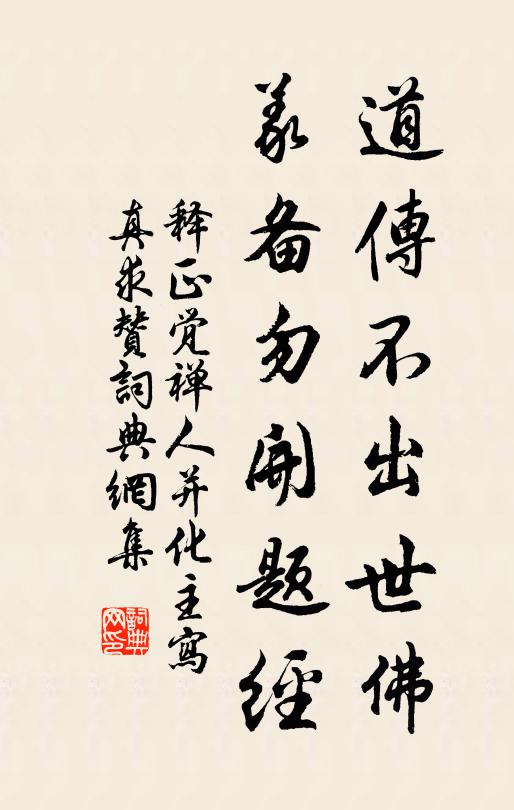 道傳不出世佛
義备勿開题經
释正觉禅人并化主寫
真求賛詞典網集
詞典
网印